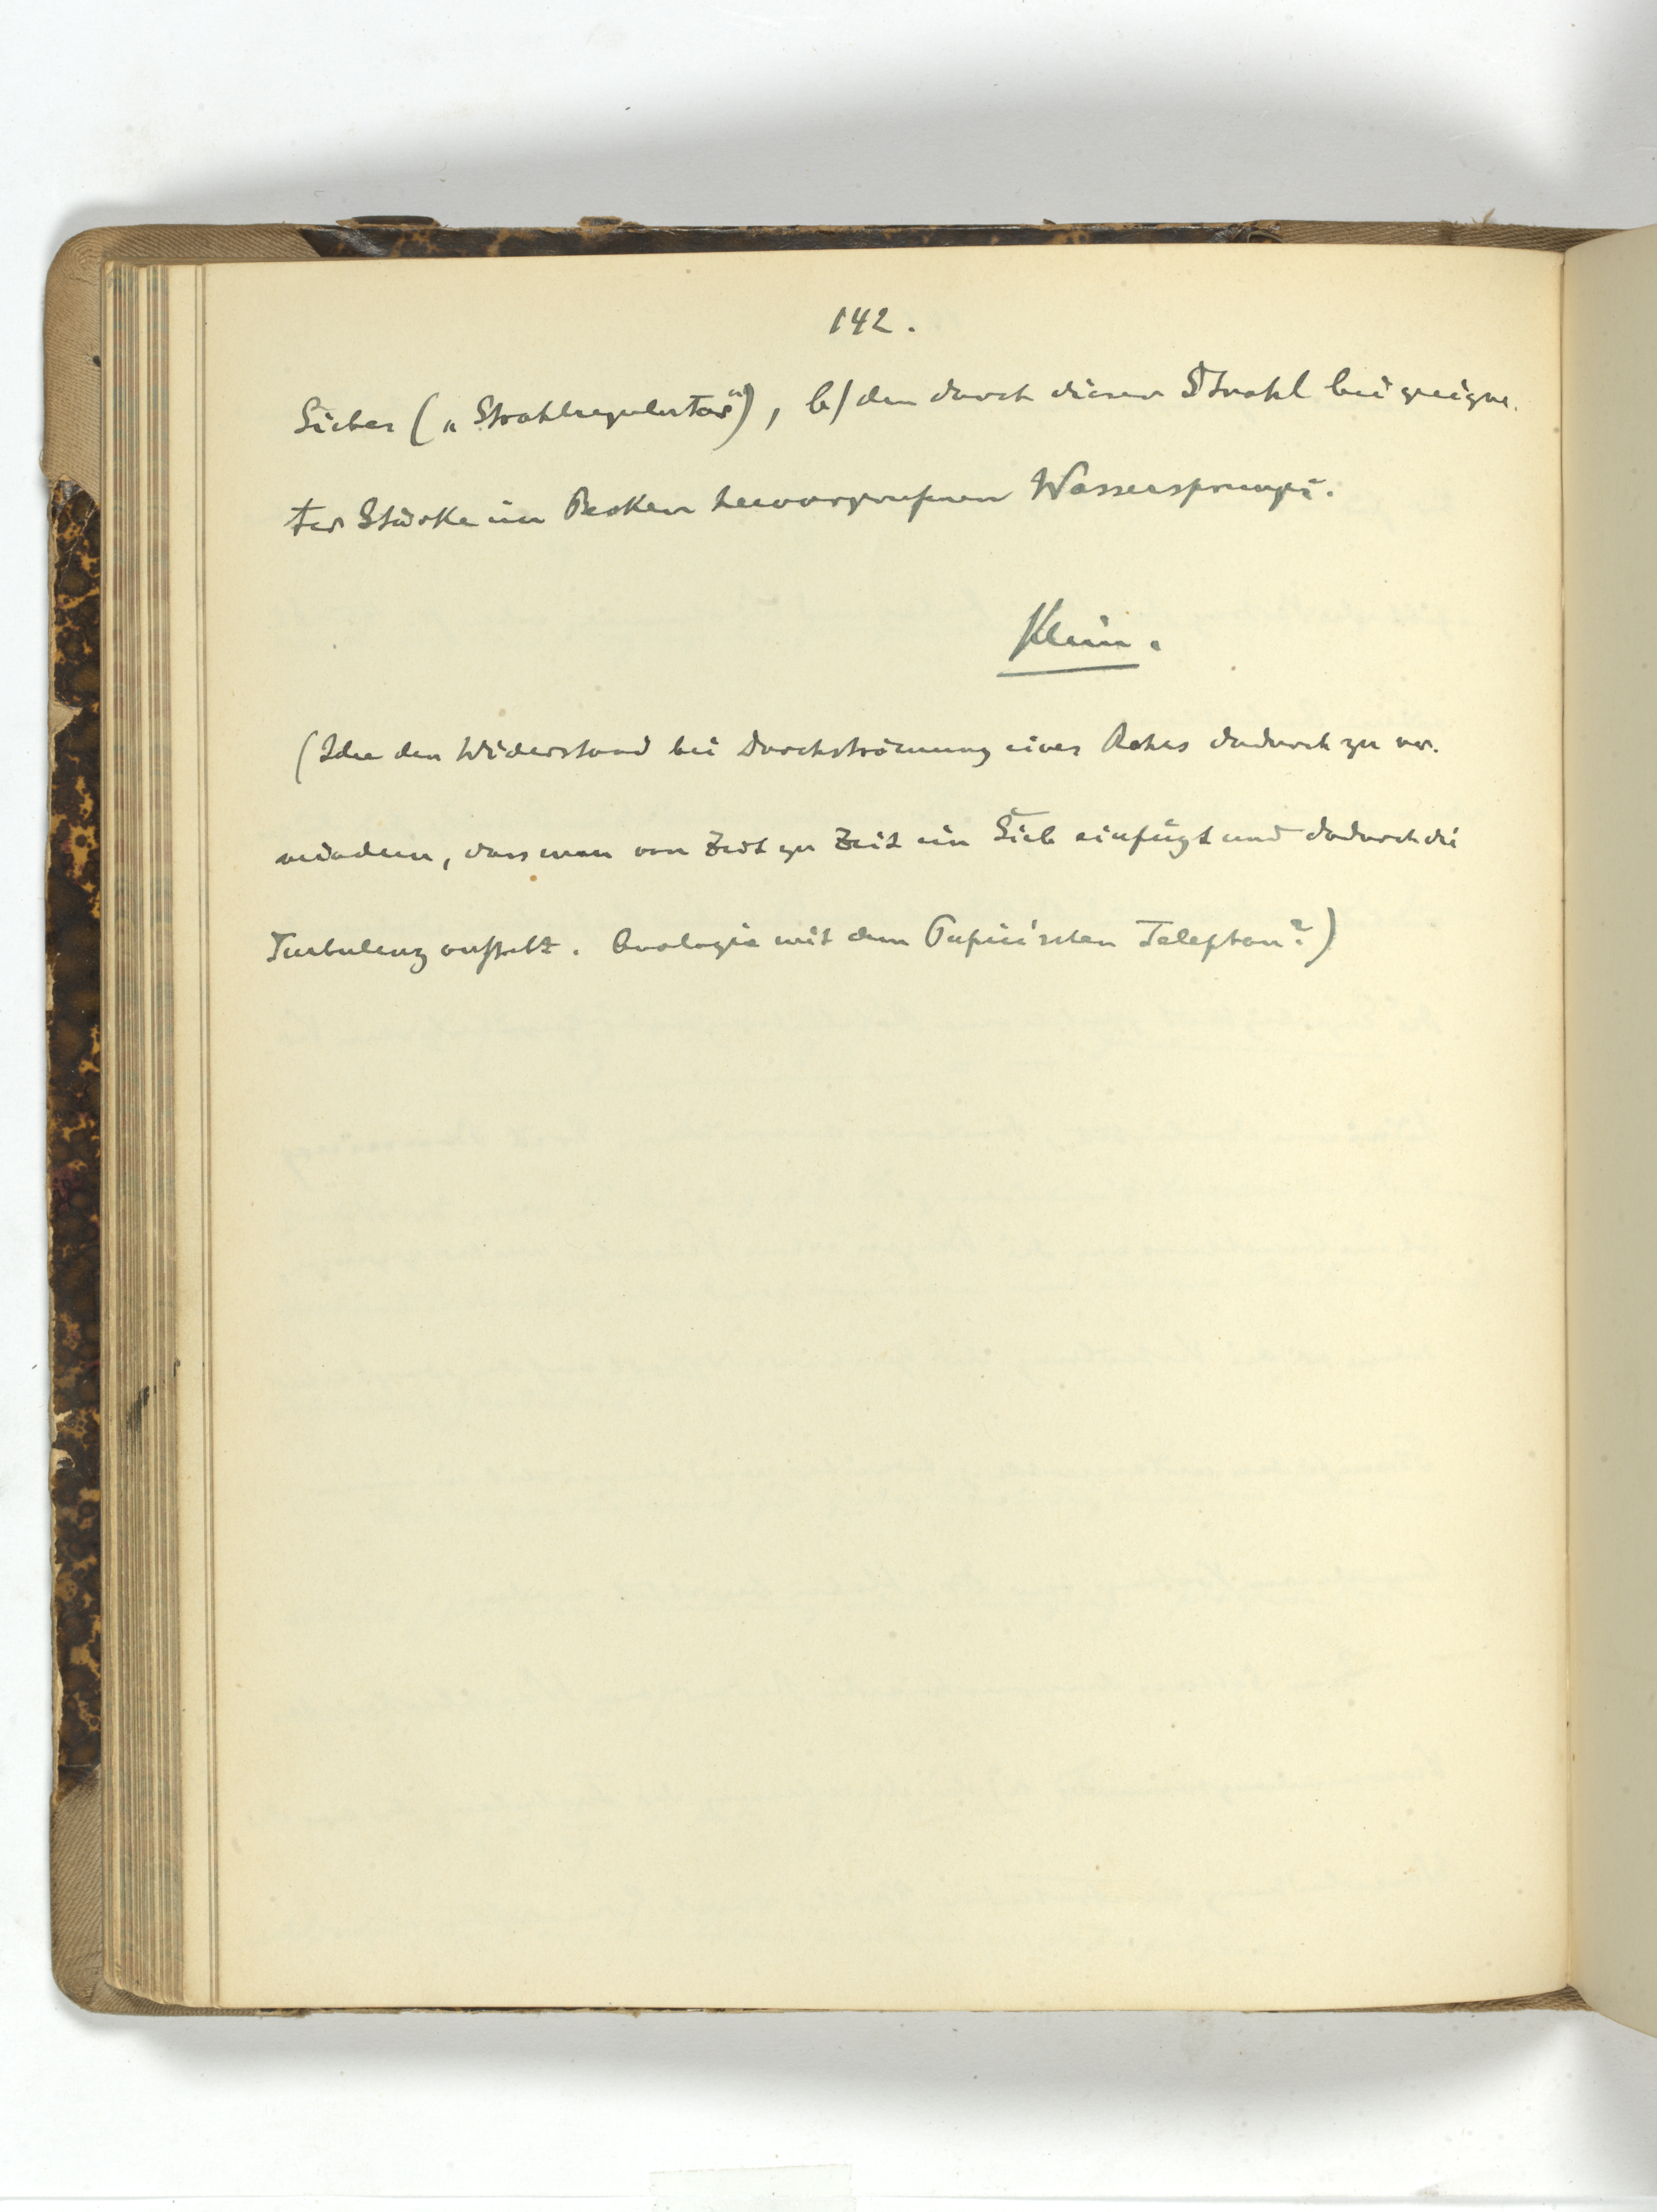 142.
Siebes („Strahlregulator“), b/ den durch diesen Strahl bei geeigne-
ter Stärke im Becken hervorgerufenen Wassersprunges.
Klein.
(Idee den Widerstand bei Durchströmung eines Rohres dadurch zu ver-
mindern, dass man von Zeit zu Zeit ein Sieb einfügt und dadurch die
Turbulenz aufhebt. Analogie mit dem Pupin'schen Telephon?)